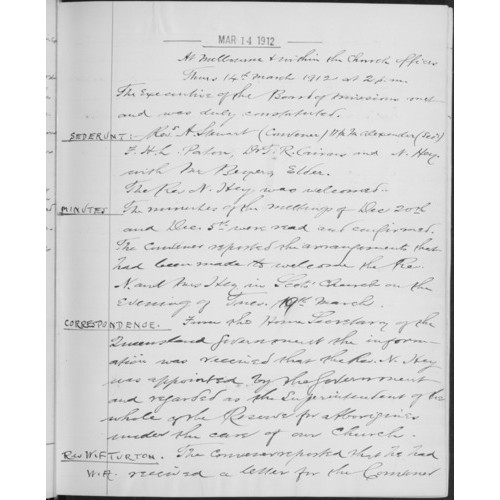 MAR 14 1912
At Melbourne & within the Church Offices
Thurs 14th March 1912 at 2 p.m.
The Executive of the Board of missions met
and was duly constituted.
SEDERUNT:- Revs A. Stewart (Convener) W.M. Alexander (Sec)
F.H.L. Paton, Dr T.R. Cairns and N. Hey
with Mr Elder.
The Rev. N. Hey was welcomed.
MINUTES The minutes of the meetings of Dec 20th
and Dec. 5th were read and confirmed.
The Convener reported the arrangements that
had been made to welcome the Rev
N. and Mrs Hey in Scots' Church on the
Evening of Tues. 19th March.
CORRESPONDENCE. From the Home Secretary of the
Queensland Government the inform-
ation was received that the Rev. N. Hey
was appointed by the Government
and regarded as the Superintendent of the
whole of the Reserve for Aborigines
under the care of our Church.
REV W.F. TURTON. The Convener reported that he had
W.A. received a letter for the